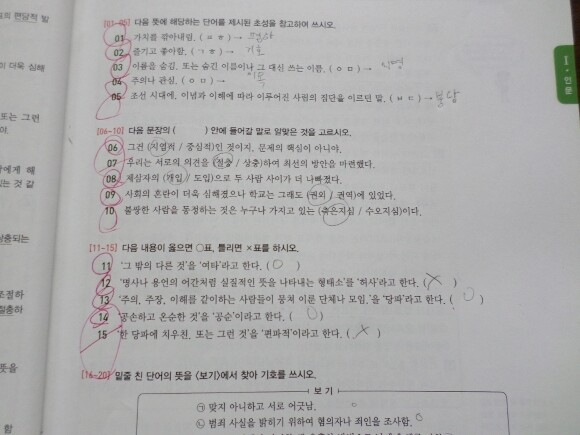 의 면담적 발
[01-05] 다음 뜻에 해당하는 단어를 제시된 초성을 참고하여 쓰시오.
01 가치를 깎아내림. (ㅍㅎ) → 폄하
02 즐기고 좋아함. (ㄱㅎ) → 기호
03 이름을 숨김. 또는 숨긴 이름이나 그 대신 쓰는 이름. (ㅇㅁ) → 익명
04 주의나 관심. (ㅇㅁ) → 이목
05 조선 시대에, 이념과 이해에 따라 이루어진 사림의 집단을 이르던 말. (ㅂㄷ) → 붕당
I · 인문
이 더욱 심해
또는 그런
야.
[06-10] 다음 문장의 ( ) 안에 들어갈 말로 알맞은 것을 고르시오.
06 그건 (지엽적 / 중심적)인 것이지, 문제의 핵심이 아니야.
07 우리는 서로의 의견을 (절충 / 상충)하여 최선의 방안을 마련했다.
08 제삼자의 (개입 / 도입)으로 두 사람 사이가 더 나빠졌다.
09 사회의 혼란이 더욱 심해졌으나 학교는 그래도 (권외 / 권역)에 있었다.
10 불쌍한 사람을 동정하는 것은 누구나 가지고 있는 (측은지심 / 수오지심)이다.
에게 해
있는 것 같
[11-15] 다음 내용이 옳으면 ○표, 틀리면 ×표를 하시오.
11 '그 밖의 다른 것'을 '여타'라고 한다. ( ○ )
12 '명사나 용언의 어간처럼 실질적인 뜻을 나타내는 형태소'를 '허사'라고 한다. ( × )
13 '주의, 주장, 이해를 같이하는 사람들이 뭉쳐 이룬 단체나 모임.'을 '당파'라고 한다. ( ○ )
14 '공손하고 온순한 것'을 '공순'이라고 한다. ( ○ )
15 '한 당파에 치우친. 또는 그런 것'을 '편파적'이라고 한다. ( × )
상충되는
조정하
절충하
뜻을
함
[16-20] 밑줄 친 단어의 뜻을 〈보기〉에서 찾아 기호를 쓰시오.
보기
㉠ 맞지 아니하고 서로 어긋남.
㉡ 범죄 사실을 밝히기 위하여 혐의자나 죄인을 조사함.